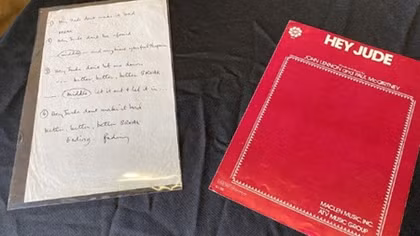 ① Hey Jude dont make it bad
② Hey Jude dont be afraid
middle and any time you feel the pain
③ Hey Jude dont let me down
better, better, better
middle let it out & let it in
④ Hey Jude dont make it bad
better, better, better
fading fading
HEY JUDE
JOHN LENNON and PAUL McCARTNEY
MACLEN MUSIC, INC.
ATV MUSIC GROUP